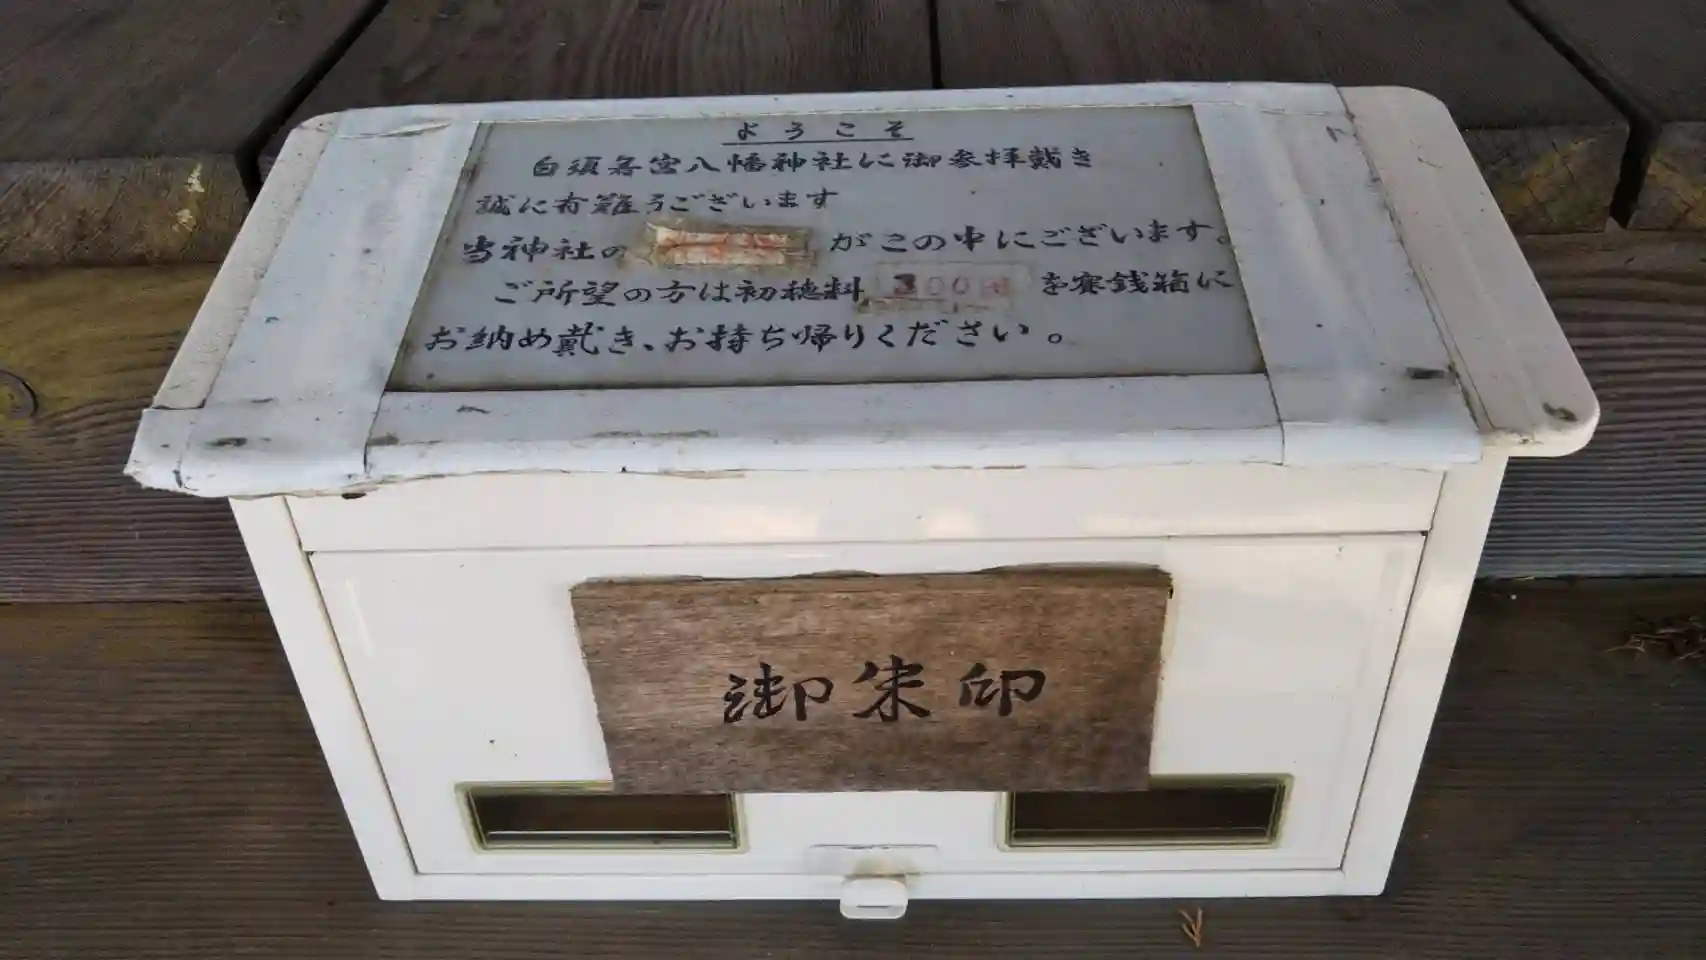 ようこそ
白須若宮八幡神社に御参拝戴き
誠に有難うございます
当神社の がこの中にございます。
ご所望の方は初穂料 300円 を賽銭箱に
お納め戴き、お持ち帰りください。
御朱印